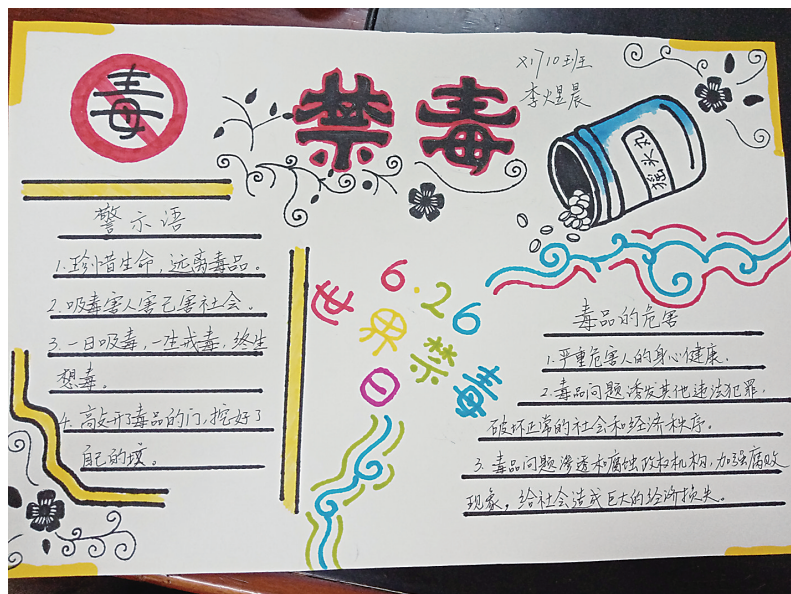 毒
禁毒
X1710班
李煜晨
摇头丸
警示语
1.珍惜生命,远离毒品。
2.吸毒害人害己害社会。
3.一日吸毒,一生戒毒,终生
想毒。
4.敲开了毒品的门,挖好了
自己的坟。
6·26
世界禁毒
日
毒品的危害
1.严重危害人的身心健康.
2.毒品问题诱发其他违法犯罪.
破坏正常的社会和经济秩序.
3.毒品问题渗透和腐蚀政权机构,加强腐败
现象,给社会造成巨大的经济损失.